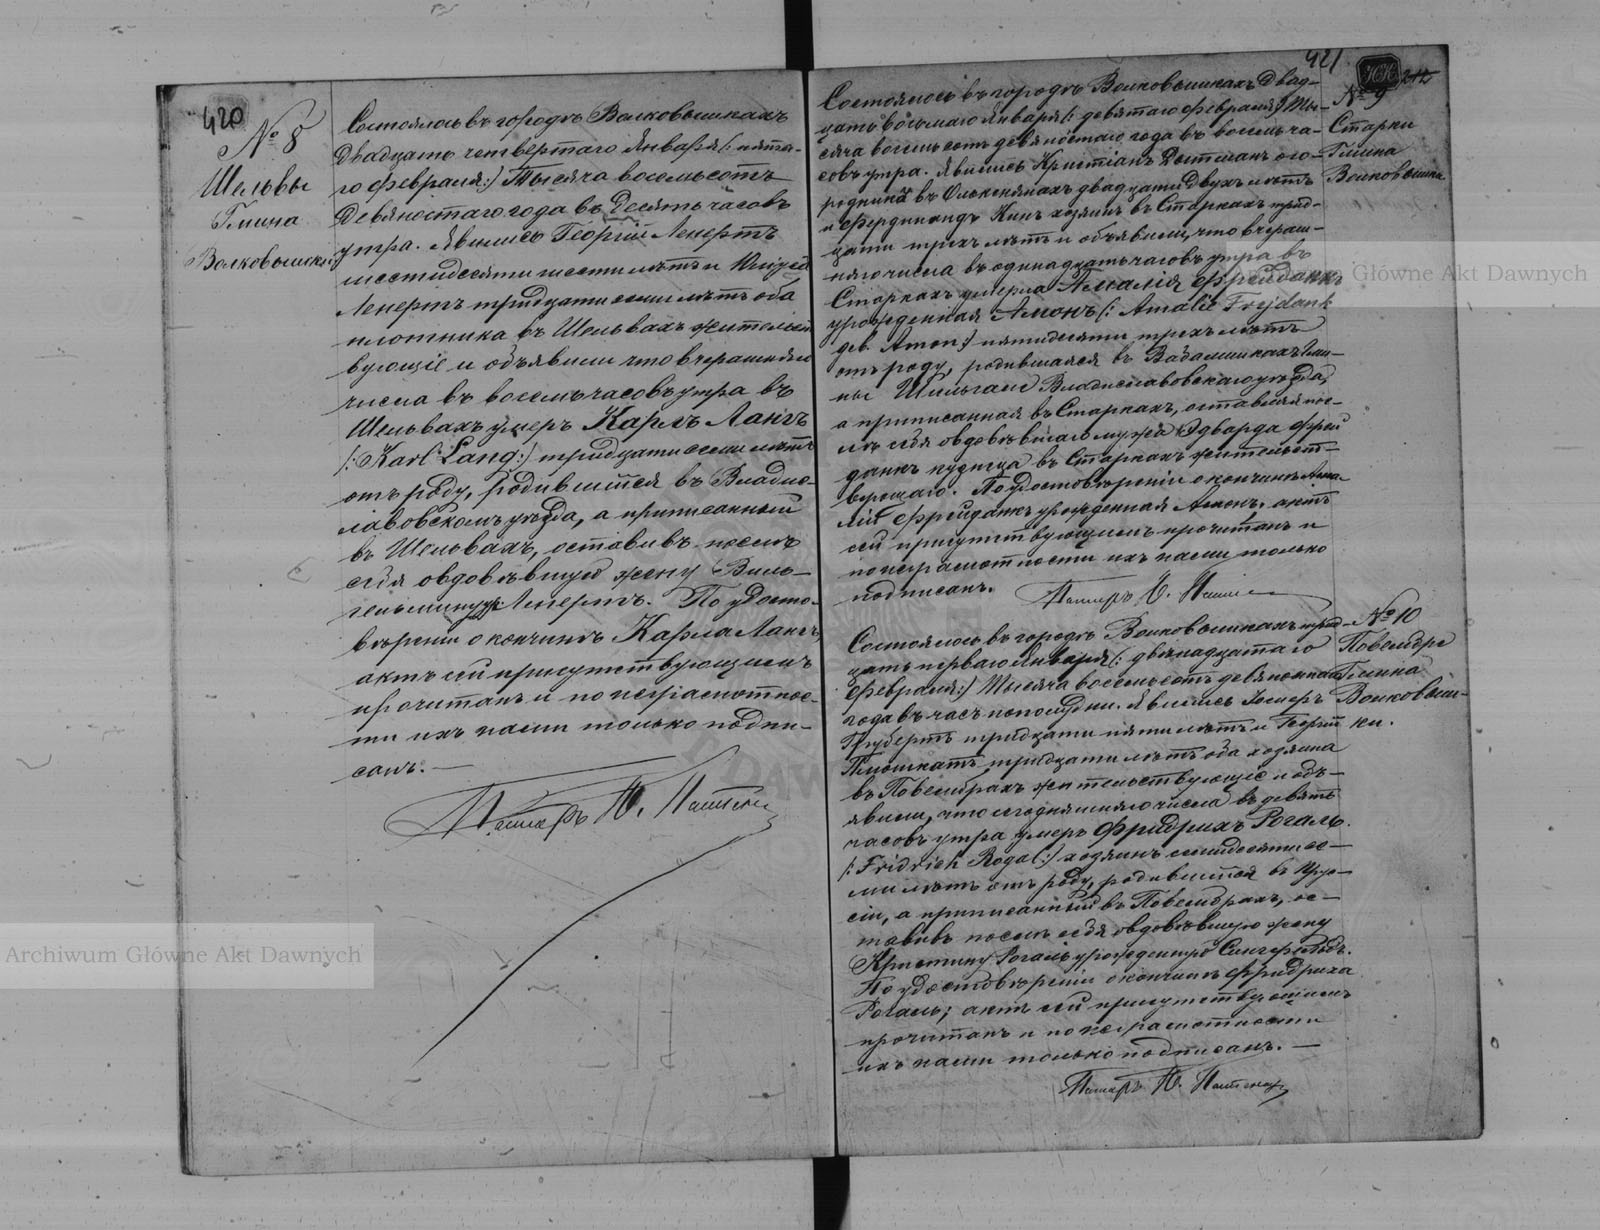 420
№ 8
Шельвы
Гмина
Волковышки
Состоялось въ городѣ Волковышкахъ
двадцать четвертаго Января (: пята-
го февраля :) Тысяча восемьсотъ
девяностаго года въ десять часовъ
утра. Явились Георгій Ленертъ
шестидесяти шести лѣтъ и
Ленертъ тридцати семи лѣтъ оба
плотника въ Шельвахъ жительст
вующіе и объявили что вчерашняго
числа въ восемь часовъ утра въ
Шельвахъ умеръ Карлъ Лангъ
/: Karl Lang :/ тридцати семи лѣтъ
отъ роду, родившійся въ Владис-
лавовскомъ уѣздѣ, а приписанный
въ Шельвахъ, оставивъ послѣ
себя овдовѣвшую жену Виль-
гельмину Ленертъ. По удосто-
вѣреніи о кончинѣ Карла Лангъ,
актъ сей присутствующимъ
прочитанъ и по неграмотнос-
ти ихъ нами только подпи-
санъ. —
Пасторъ
421
№ 9
Старки
Гмина
Волковышки
Состоялось въ городѣ Волковышкахъ двад-
цать восьмаго Января (: девятаго февраля :) Ты-
сяча восемьсотъ девяностаго года въ восемь ча-
совъ утра. Явились Христіанъ ого-
родникъ въ двадцати двухъ лѣтъ
и Фердинандъ Кинъ хозяинъ въ Старкахъ трид-
цати трехъ лѣтъ и объявили, что вчераш-
няго числа въ одинадцать часовъ утра въ
Старкахъ умерла Амалія Фрейданкъ
урожденная Амонъ (: Amalie Frejdank
geb. Amon :) пятидесяти трехъ лѣтъ
отъ роду, родившаяся въ Гми-
ны Шильгале Владиславовскаго уѣзда,
а приписанная въ Старкахъ, оставляя пос-
лѣ себя овдовѣвшаго мужа Эдварда Фрей
данкъ кузнеца въ Старкахъ жительст-
вующаго. По удостовѣреніи о кончинѣ Ама-
ліи Фрейданкъ урожденная Амонъ, актъ
сей присутствующимъ прочитанъ и
по неграмотности ихъ нами только
подписанъ.
Пасторъ
№ 10
Повембре
Гмина
Волковыш-
ки.
Состоялось въ городѣ Волковышкахъ трид-
цать перваго Января (: двѣнадцатаго
февраля :) Тысяча восемьсотъ девяностаго
года въ часъ пополудни. Явились
Грубертъ тридцати пяти лѣтъ и Георгій
тридцати лѣтъ оба хозяина
въ Повембрахъ жительствующіе и объ-
явили, что сегодняшняго числа въ девять
часовъ утра умеръ Фридрихъ Рогаль.
/: Fridrich Rogal :/ хозяинъ семидесяти се-
ми лѣтъ отъ роду, родившійся въ Прус-
сіи, а приписанный въ Повембрахъ, ос-
тавивъ послѣ себя овдовѣвшую жену
Кристину Рогаль урожденную
По удостовѣреніи о кончинѣ Фридриха
Рогаль; актъ сей присутствующимъ
прочитанъ и по неграмотности
ихъ нами только подписанъ. —
Пасторъ
Główne Akt Dawnych
Archiwum Główne Akt Dawnych